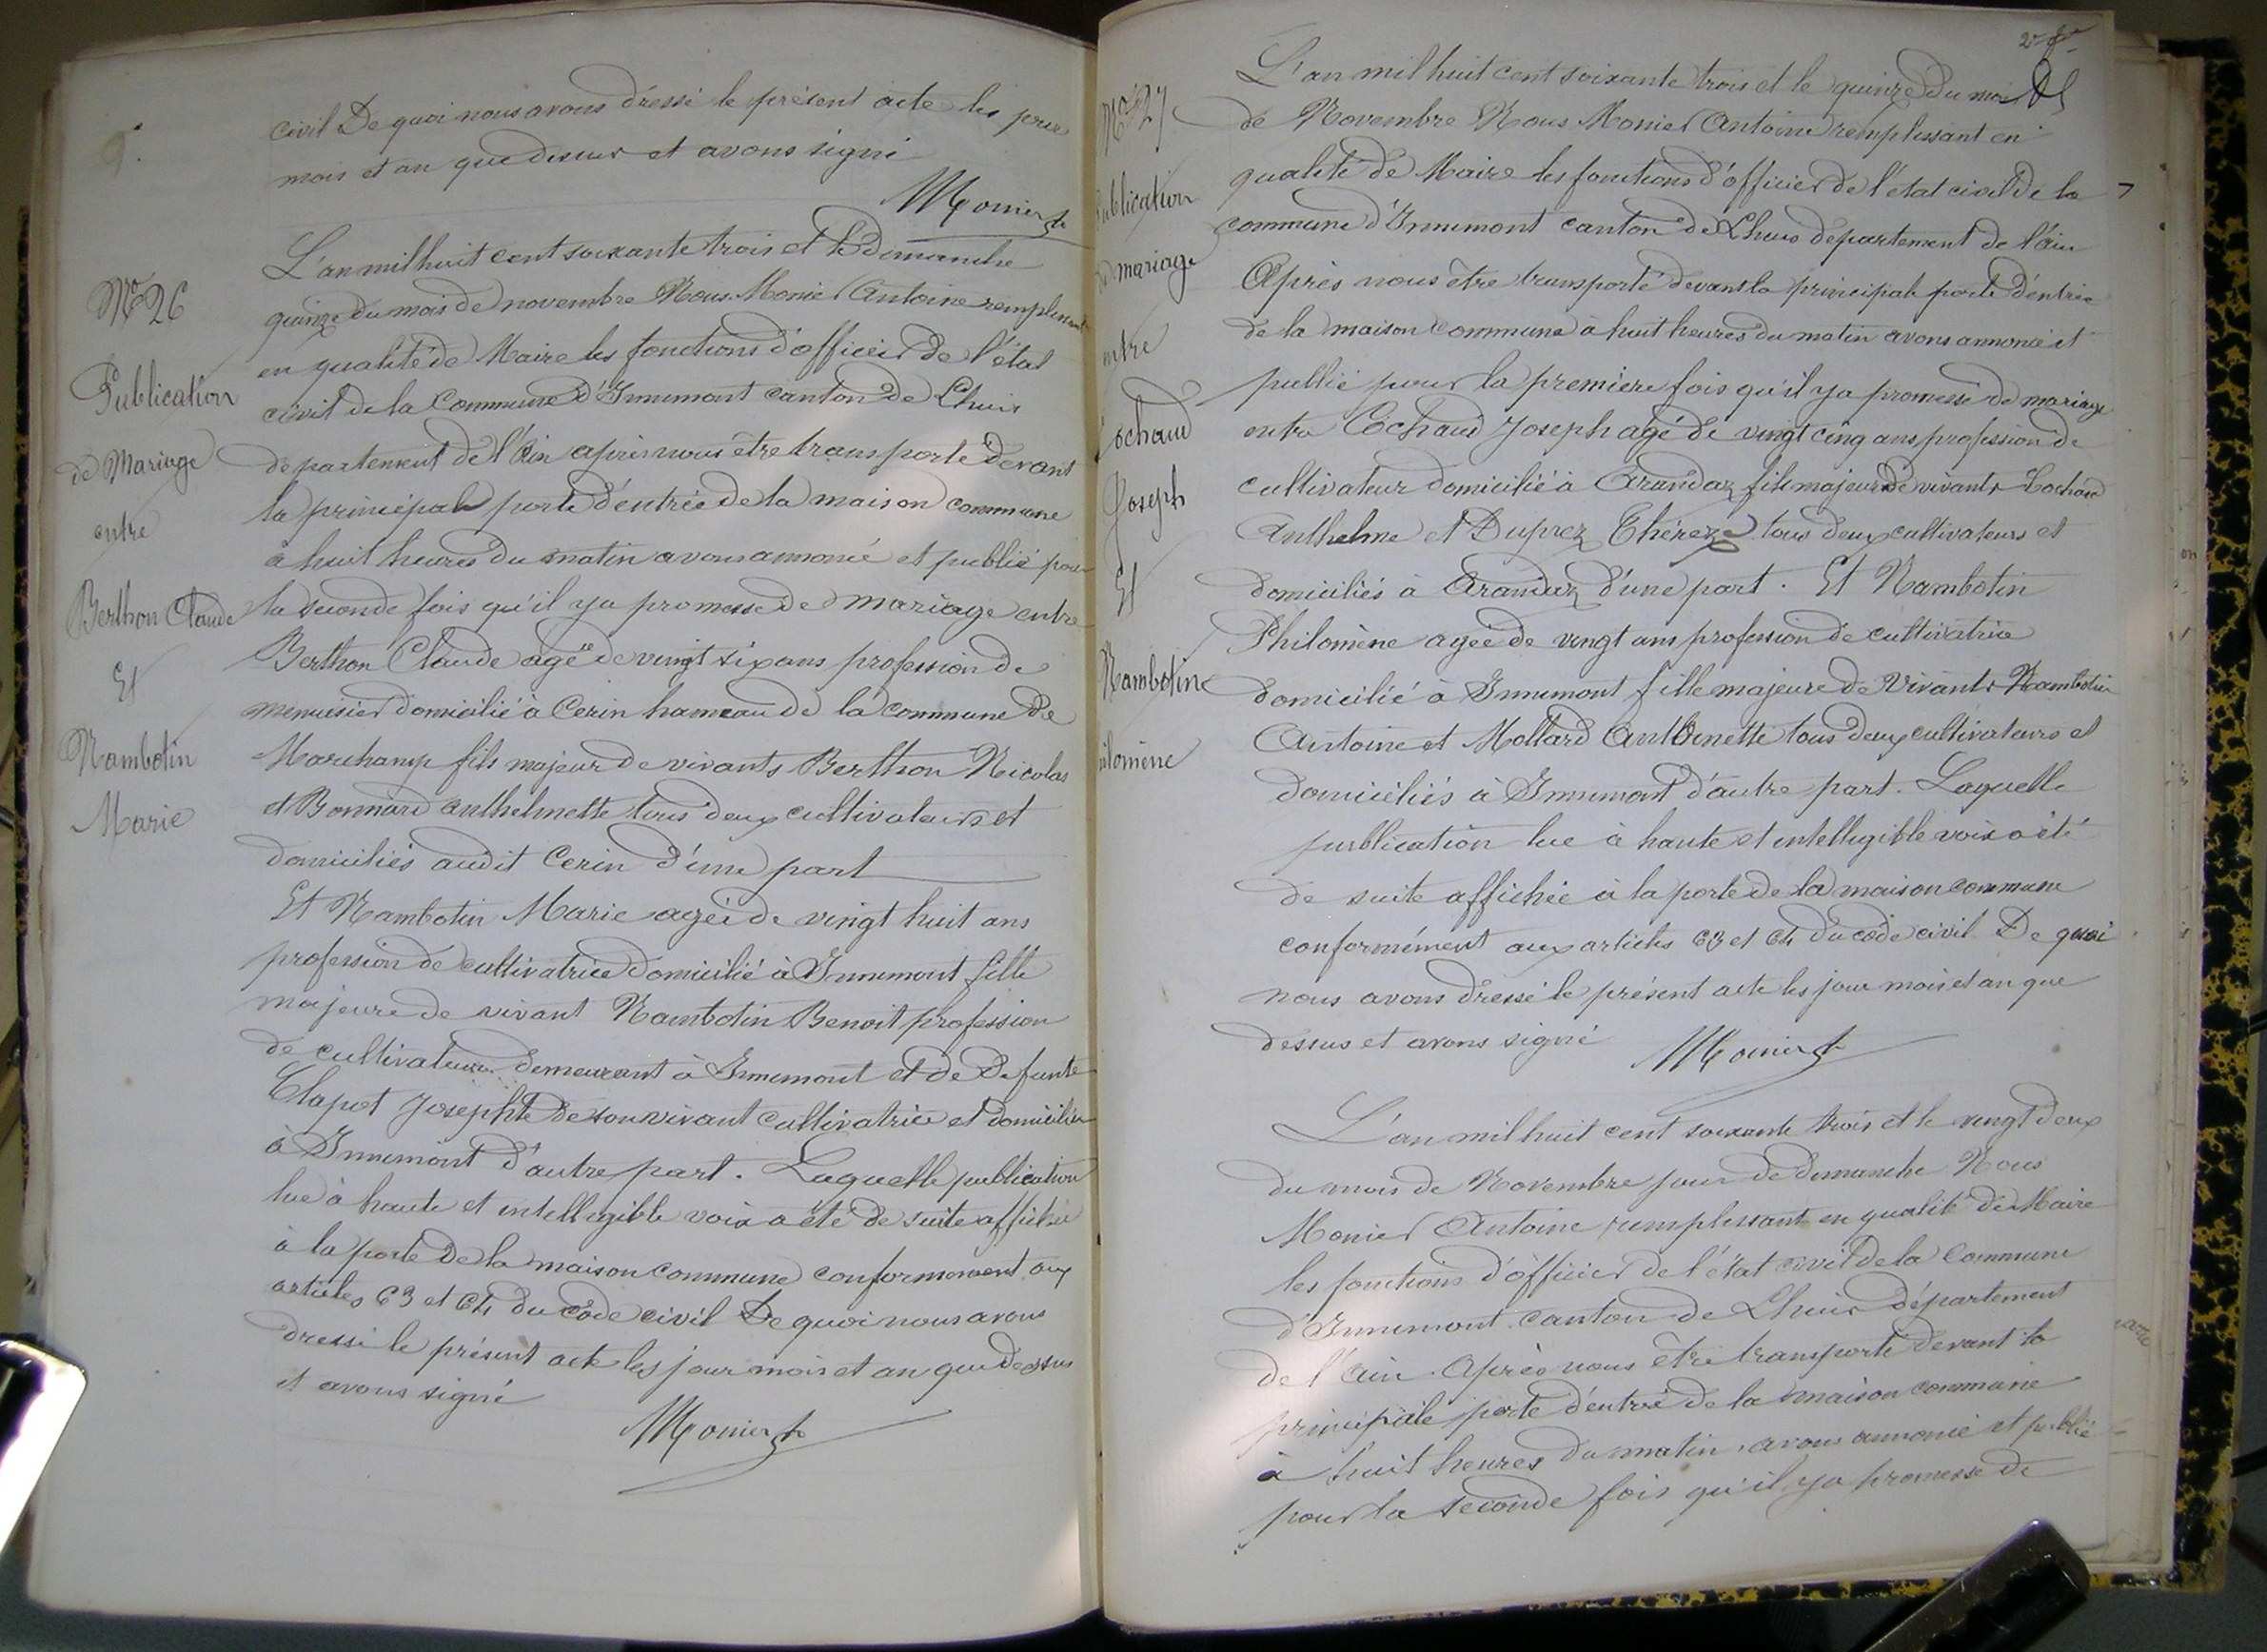 civil De quoi nous avons dressé le présent acte les
mois et an que dessus et avons signé
Monier
N° 26
Publication
de Mariage
entre
Berthon Claude
Et
Nambotin
Marie
L'an mil huit cent soixante trois et le dimanche
quinze du mois de novembre Nous Monier Antoine remplissant
en qualité de Maire les fonctions d'officier de l'état
civil de la Commune d'Innimont canton de Lhuis
departement de l'Ain après nous être transporté devant
la principale porte d'entrée de la maison commune
à huit heures du matin avons annoncé et publié pour
la seconde fois qu'il y a promesse de mariage entre
Berthon Claude agé de vingt six ans profession de
menuisier domicilié à Cerin hameau de la commune de
Marchamp fils majeur de vivants Berthon Nicolas
et Bonnard anthelmette tous deux cultivateurs et
domiciliés audit Cerin d'une part
Et Nambotin Marie agée de vingt huit ans
profession de cultivatrice domicilié à Innimont fille
majeure de vivant Nambotin Benoit profession
de cultivateur demeurant à Innimont et de Defunte
Clapot Josephte de son vivant cultivatrice et domiciliée
à Innimont d'autre part. Laquelle publication
lue à haute et intelligible voix a été de suite affichée
à la porte de la maison commune conformement aux
articles 63 et 64 du code civil De quoi nous avons
dressé le présent acte les jour mois et an que dessus
et avons signé
Monier
N° 27
ublication
mariage
ntre
ochaud
Joseph
Et
Nambotin
ilomène
L'an mil huit cent soixante trois et le quinze du mois
de Novembre Nous Monier Antoine remplissant en
qualité de Maire les fonctions d'officier de l'état civil de la
commune d'Innimont canton de Lhuis département de l'ain
Après nous être transporté devant la principale porte d'entrée
de la maison commune à huit heures du matin avons annoncé et
publié pour la première fois qu'il y a promesse de mariage
entre Cochaud Joseph agé de vingt cinq ans profession de
cultivateur domicilié à Arandaz fils majeur de vivants Cochaud
Anthelme et Duprez Thérèze tous deux cultivateurs et
domiciliés à Arandaz d'une part. Et Nambotin
Philomène agée de vingt ans profession de cultivatrice
domicilié à Innimont fille majeure de Vivants Nambotin
Antoine et Mollard Anthoinette tous deux cultivateurs et
domiciliés à Innimont d'autre part. Laquelle
publication lue à haute et intelligible voix a été
de suite affichée à la porte de la maison commune
conformément aux articles 63 et 64 du code civil De quoi
nous avons dressé le présent acte les jour mois et an que
dessus et avons signé
Monier
L'an mil huit cent soixante trois et le vingt deux
du mois de Novembre jour de dimanche Nous
Monier Antoine remplissant en qualité de Maire
les fonctions d'officier de l'état civil de la Commune
d'Innimont canton de Lhuis département
de l'ain. Après nous être transporté devant la
principale porte d'entrée de la maison commune
à huit heures du matin, avons annoncé et publié
pour la seconde fois qu'il y a promesse de